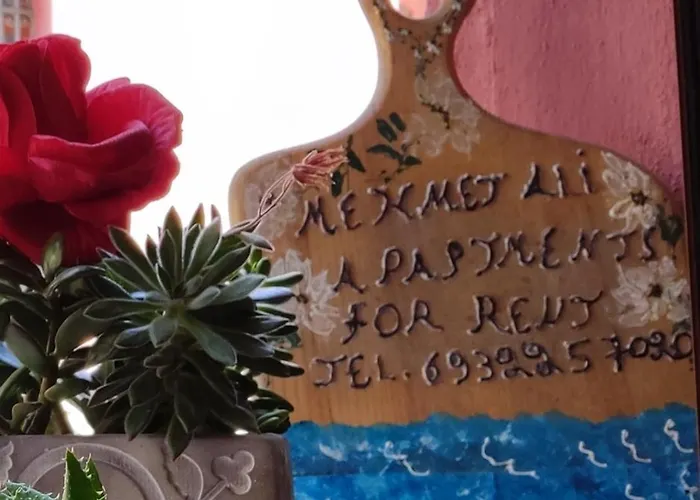 MEHMET ALI
APARTMENTS
FOR RENT
TEL. 6932257020